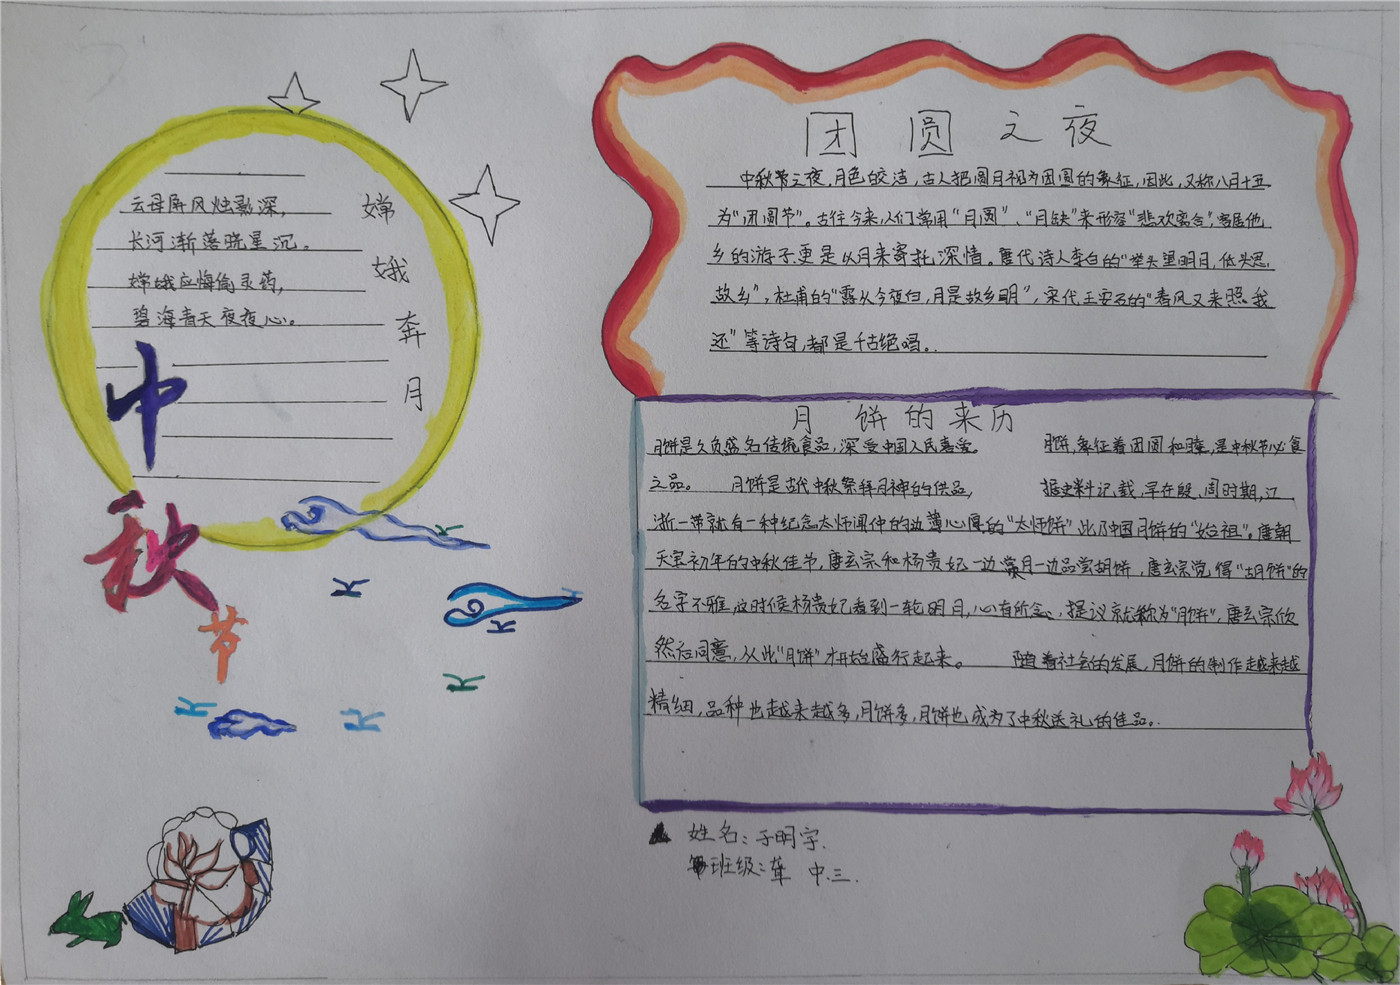 嫦娥奔月
云母屏风烛影深，
长河渐落晓星沉。
嫦娥应悔偷灵药，
碧海青天夜夜心。
中秋节
团圆之夜
中秋节之夜，月色皎洁，古人把圆月视为团圆的象征，因此，又称八月十五
为“团圆节”。古往今来，人们常用“月圆”、“月缺”来形容“悲欢离合”，客居他
乡的游子更是以月来寄托深情。唐代诗人李白的“举头望明月，低头思
故乡”，杜甫的“露从今夜白，月是故乡明”，宋代王安石的“春风又来照我
还”等诗句，都是千古绝唱。
月饼的来历
月饼是久负盛名传统食品，深受中国人民喜爱。 月饼，象征着团圆和睦，是中秋节必食
之品。 月饼是古代中秋祭拜月神的供品， 据史料记载，早在殷、周时期，江
浙一带就有一种纪念太师闻仲的边薄心厚的“太师饼”此乃中国月饼的“始祖”。唐朝
天宝初年的中秋佳节，唐玄宗和杨贵妃一边赏月一边品尝胡饼，唐玄宗觉得“胡饼”的
名字不雅，这时候杨贵妃看到一轮明月，心有所念，提议就称为“月饼”，唐玄宗欣
然后同意，从此“月饼”才开始盛行起来。 随着社会的发展，月饼的制作越来越
精细，品种也越来越多，月饼多，月饼也成为了中秋送礼的佳品。
姓名：子明宇
班级：聋 中.三.